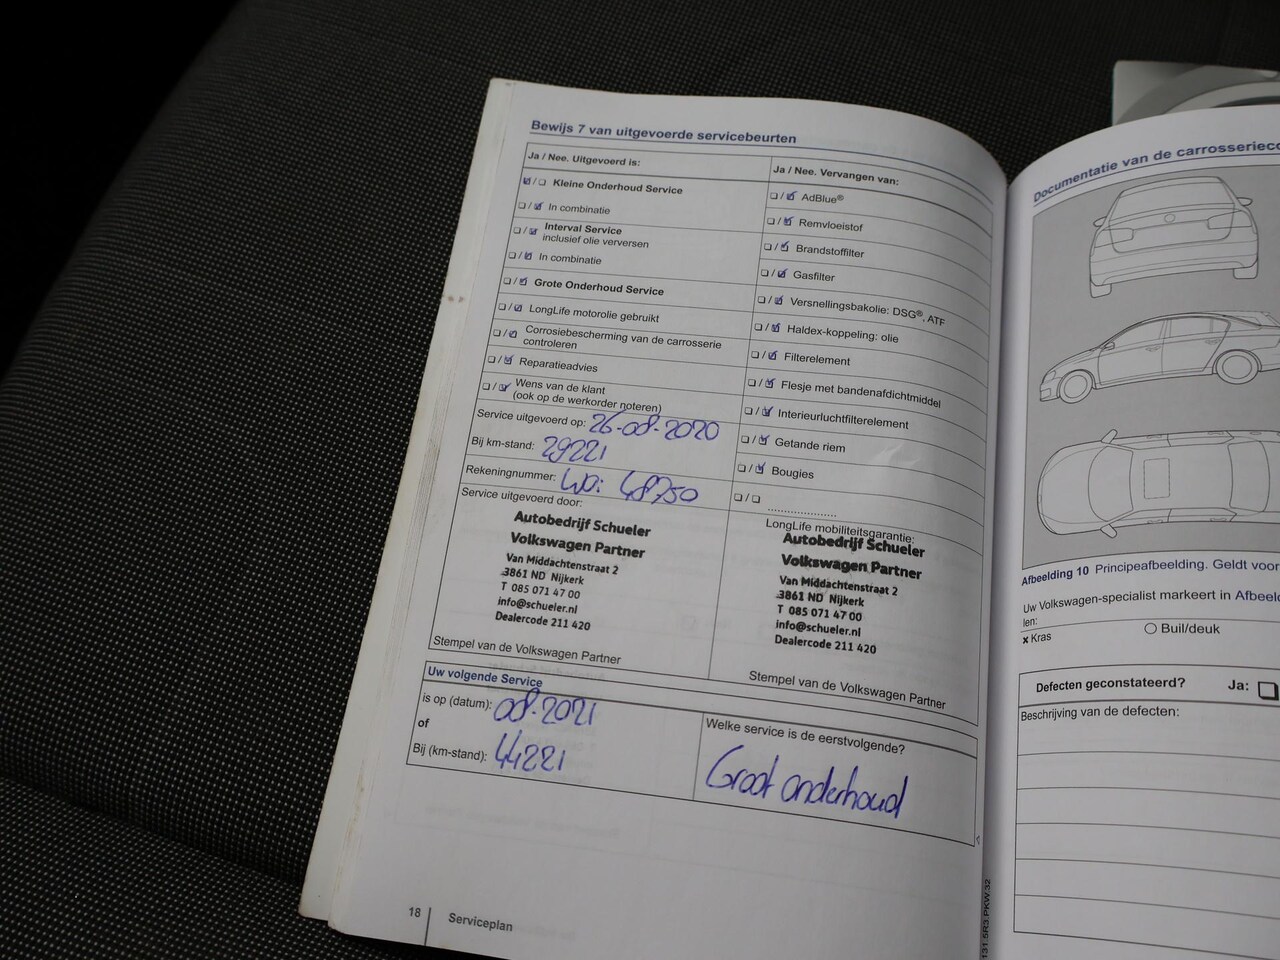 Bewijs 7 van uitgevoerde servicebeurten
Ja / Nee. Uitgevoerd is:
Kleine Onderhoud Service
In combinatie
Interval Service
inclusief olie verversen
In combinatie
Grote Onderhoud Service
LongLife motorolie gebruikt
Corrosiebescherming van de carrosserie
controleren
Reparatieadvies
Wens van de klant
(ook op de werkorder noteren)
Ja / Nee. Vervangen van:
AdBlue®
Remvloeistof
Brandstoffilter
Gasfilter
Versnellingsbakolie: DSG®, ATF
Haldex-koppeling: olie
Filterelement
Flesje met bandenafdichtmiddel
Interieurluchtfilterelement
Getande riem
Bougies
Service uitgevoerd op: 26-08-2020
Bij km-stand: 29221
Rekeningnummer: Wo: 48750
Service uitgevoerd door:
Autobedrijf Schueler
Volkswagen Partner
Van Middachtenstraat 2
3861 ND Nijkerk
T 085 071 47 00
info@schueler.nl
Dealercode 211 420
Stempel van de Volkswagen Partner
LongLife mobiliteitsgarantie:
Autobedrijf Schueler
Volkswagen Partner
Van Middachtenstraat 2
3861 ND Nijkerk
T 085 071 47 00
info@schueler.nl
Dealercode 211 420
Stempel van de Volkswagen Partner
Uw volgende Service
is op (datum): 08-2021
of
Bij (km-stand): 44221
Welke service is de eerstvolgende?
Groot onderhoud
18 Serviceplan
131.5R3.PKW.32
Documentatie van de carrosseriec
Afbeelding 10 Principeafbeelding. Geldt voor
Uw Volkswagen-specialist markeert in Afbeeld
len:
x Kras
Buil/deuk
Defecten geconstateerd? Ja:
Beschrijving van de defecten: